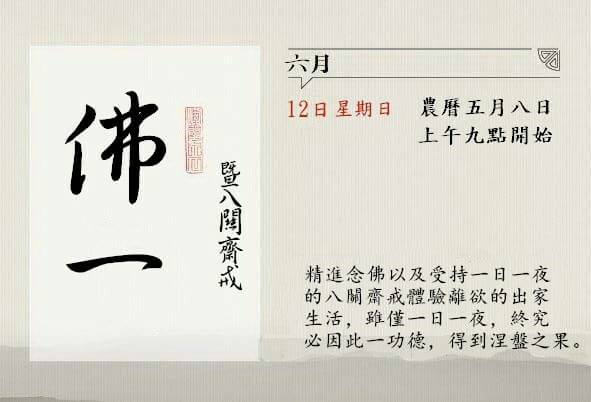 佛一
暨八關齋戒
六月
12日星期日
農曆五月八日
上午九點開始
精進念佛以及受持一日一夜
的八關齋戒體驗離欲的出家
生活，雖僅一日一夜，終究
必因此一功德，得到涅盤之果。